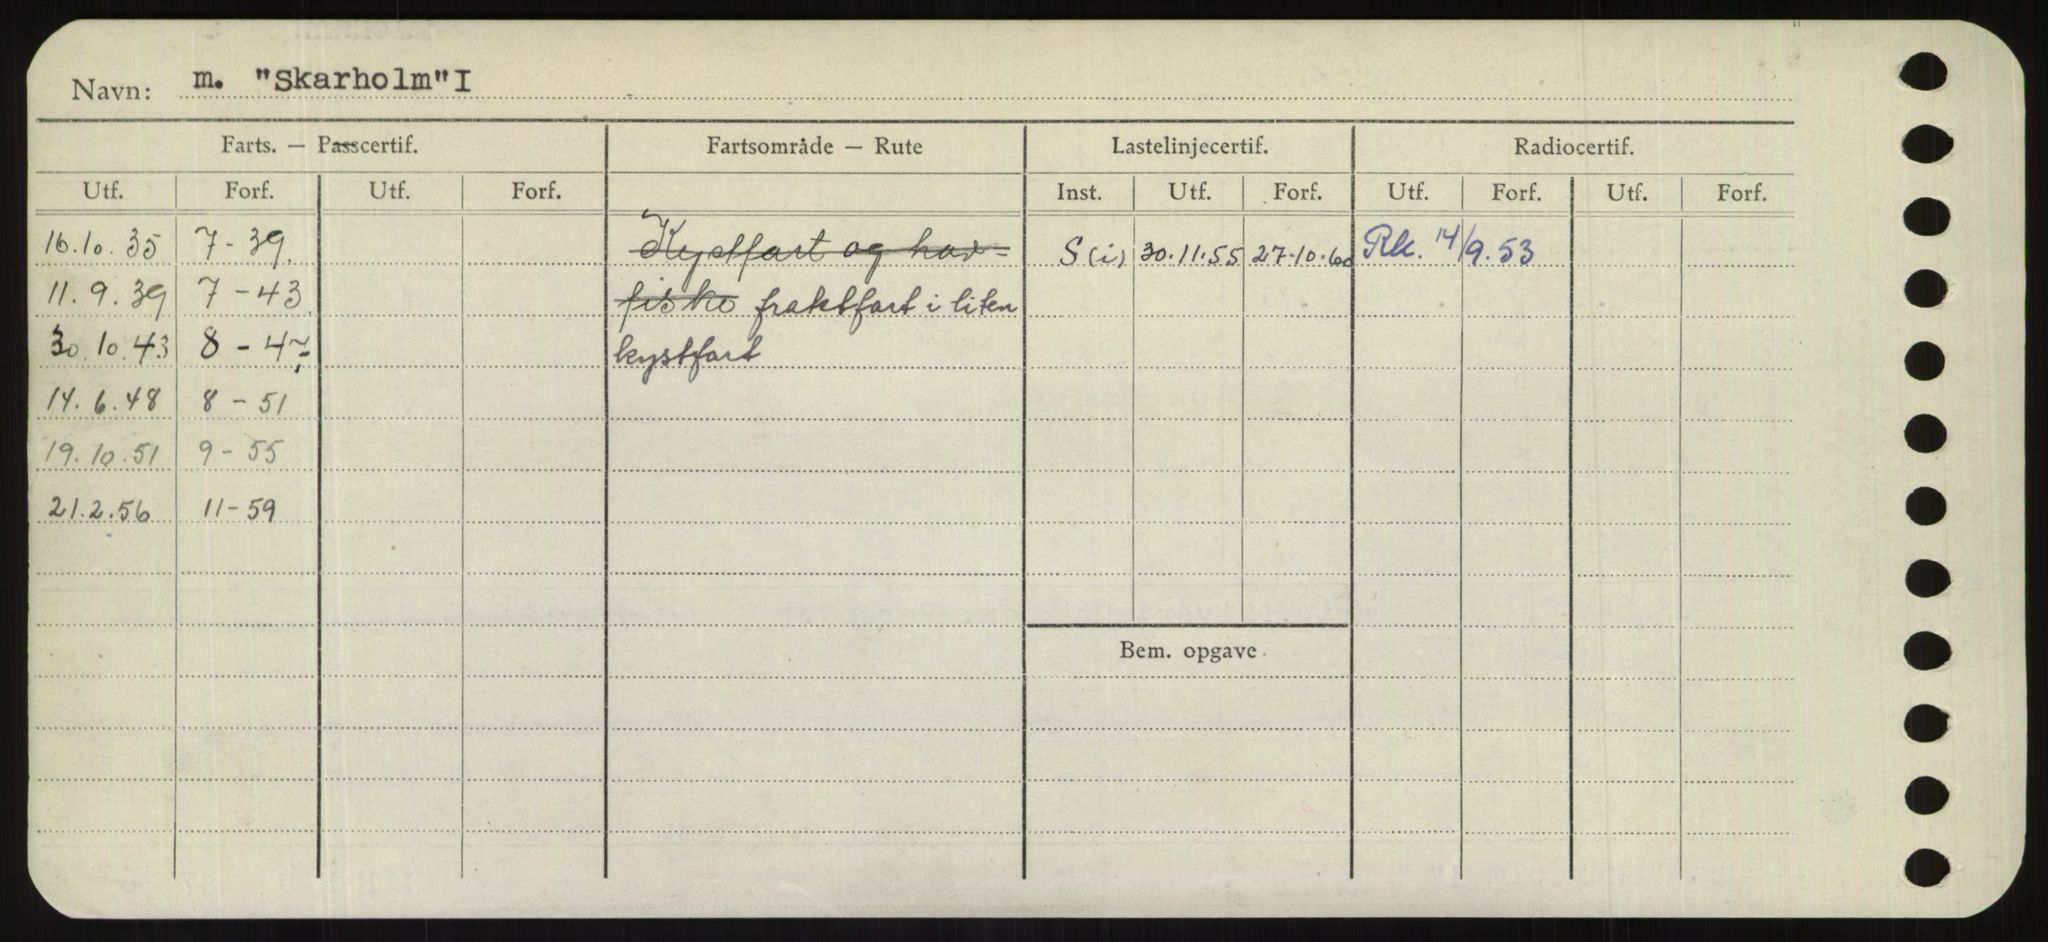 Navn: m. "Skarholm" I
Farts. — Passcertif. Fartsområde — Rute Lastelinjecertif. Radiocertif.
Utf. Forf. Utf. Forf. Inst. Utf. Forf. Utf. Forf. Utf. Forf.
16.10.35 7-39. Kystfart og hav- S(i) 30.11.55 27.10.60 Rk. 14/9.53
11.9.39 7-43 fiske fraktfart i liten
30.10.43 8-47 kystfart
14.6.48 8-51
19.10.51 9-55
21.2.56 11-59
Bem. opgave